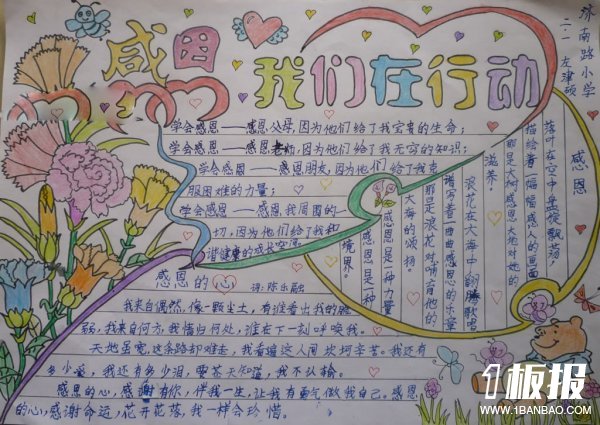 感恩
我们在行动
济南路小学
二·一 左津硕
学会感恩——感恩父母,因为他们给了我宝贵的生命;
学会感恩——感恩老师,因为他们给了我无穷的知识;
学会感恩——感恩朋友,因为他们给了我克
服困难的力量;
学会感恩——感恩我周围的一
切,因为他们给了我和
谐健康的成长空间
感恩
落叶在空中盘旋飘荡,
描绘着一幅幅感人的画面
那是大树感恩大地对她的
滋养;
浪花在大海中翻腾歌唱
谱写着一曲曲感恩的乐章
那是浪花对哺育他的
大海的颂扬。
感恩是一种力量
感恩是一种
境界。
感恩的心
词:陈乐融
我来自偶然,像一颗尘土,有谁看出我的脆
弱,我来自何方,我情归何处,谁在下一刻呼唤我。
天地虽宽,这条路却难走,我看遍这人间坎坷辛苦。我还有
多少爱,我还有多少泪,要苍天知道,我不认输。
感恩的心,感谢有你,伴我一生,让我有勇气做我自己。感恩
的心,感谢命运,花开花落,我一样会珍惜。
1板报
WWW.1BANBAO.COM